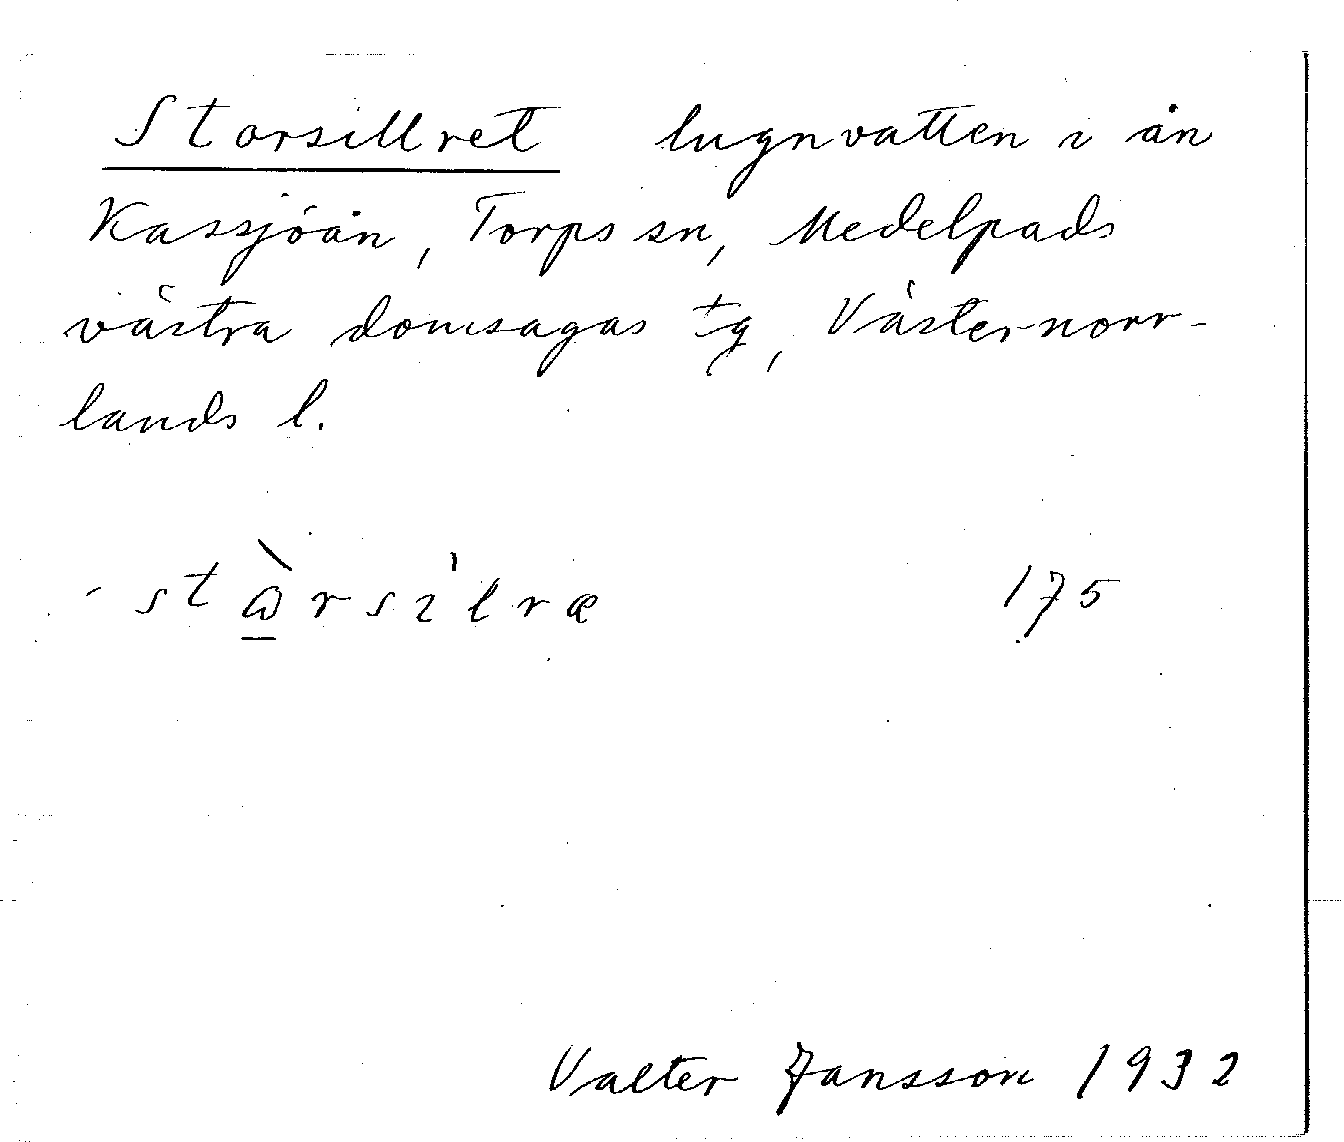 Storsillret lugnvatten i ån
Kassjöån, Torps sn, Medelpads
västra domsagas tg, Västernorr-
lands l.
- stɷ̀rsìlræ 175
Valter Jansson 1932